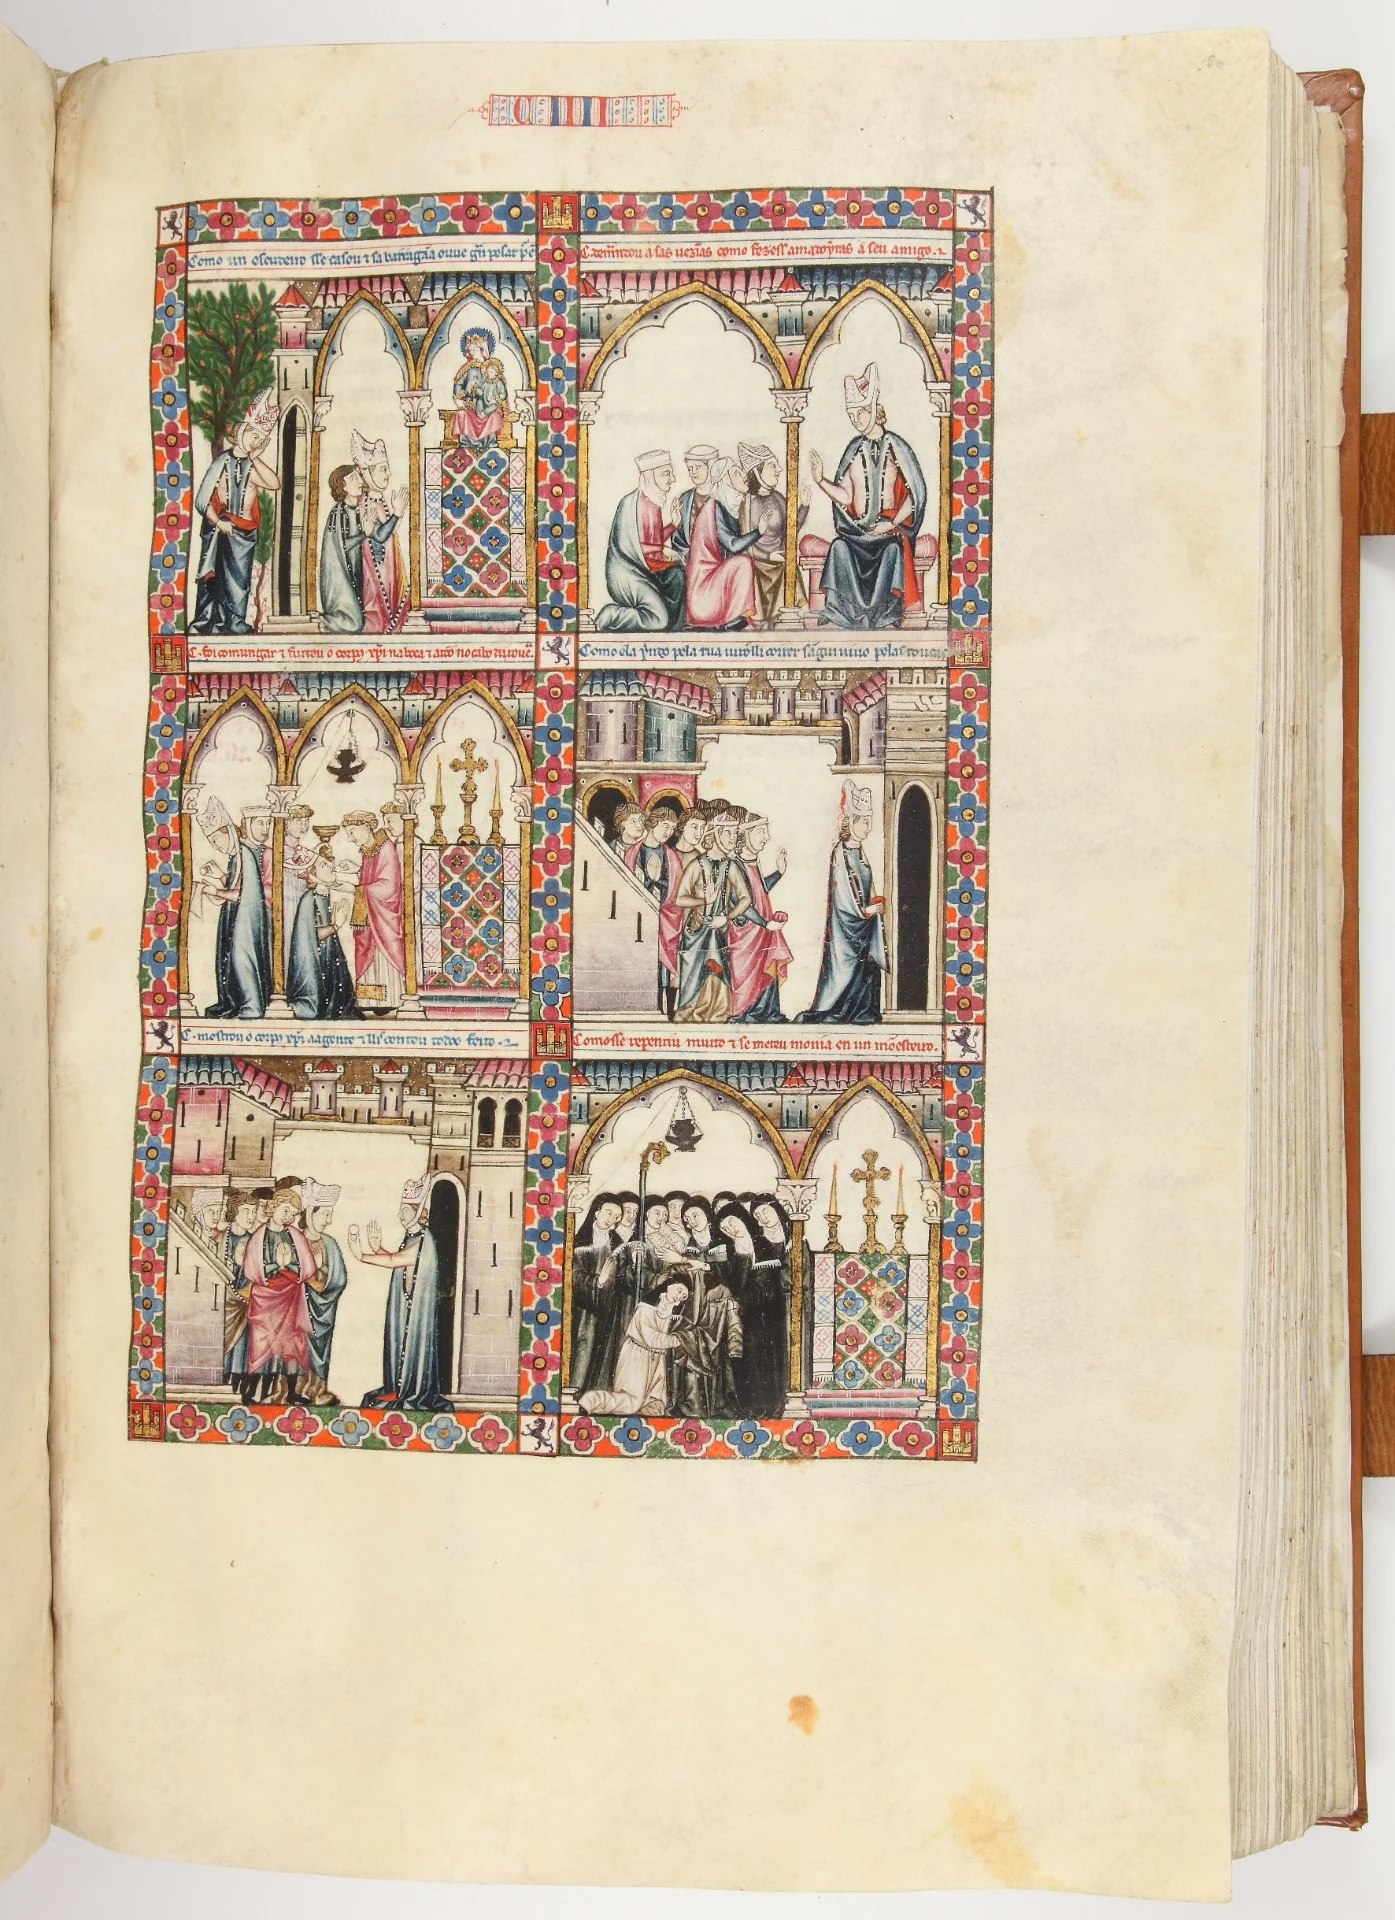 C IIII
Como un escudeiro sse casou ⁊ sa barragãa ouve grã pesar ẽde
C. demãdou a sas vezỹas como fezess amadoyras a seu amigo.
C. foi comungar ⁊ furtou o corpo xp̃i na boca ⁊ atou no cabo da touca.
Como ela yndo pela rua virõlli correr sangui vivo pelas toucas
C. mostrou o corpo xp̃i aagente ⁊ lles contou todo o feito.
Como sse repentiu muito ⁊ se meteu monia en un mõesteiro.